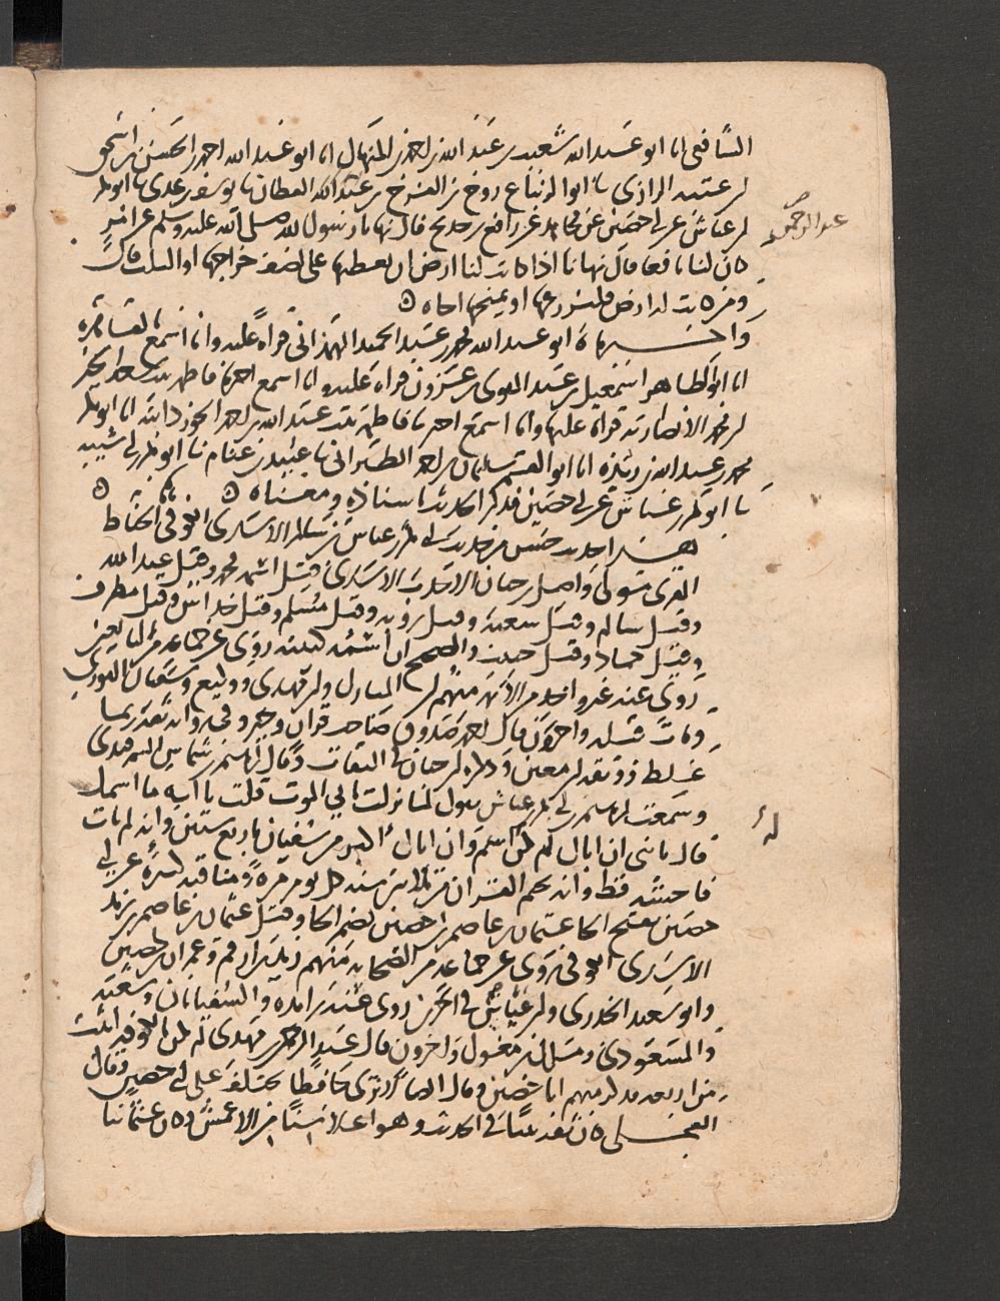 الشافعي انا ابو عبد الله شعيب بن عبد الله بن احمد بن المنهال انا ابو عبد الله احمد بن الحسن بن اسحق
بن عتبة الرازي نا ابو الزنباع روح بن الفرج بن عبد الله القطان نا يوسف بن عدي نا ابو بكر
بن عياش عن ابي حصين عن مجاهد عن رافع بن خديج قال نهانا رسول الله صلى الله عليه وسلم عن امر
كان لنا نافعا قال نهانا اذا كانت لنا ارض ان نعطيها على نصف خراجها او الثلث قال
ومن كانت له ارض فليزرعها او يمنحها اخاه
واخبرناه ابو عبد الله محمد بن عبد الحميد الهمذاني قراة عليه وانا اسمع بالقاهرة
انا ابو الطاهر اسمعيل بن عبد القوي بن عزون قراة عليه وانا اسمع اخبرتنا فاطمة بنت سعد الخير
بن محمد الانصارية قراة عليها وانا اسمع اخبرتنا فاطمة بنت عبد الله بن احمد الجوزدانية انا ابو بكر
محمد بن عبد الله بن ريذة انا ابو القسم سليمان بن احمد الطبراني نا عبيد بن غنام نا ابو بكر بن ابي شيبة
نا ابو بكر بن عياش عن ابي حصين فذكر الحديث باسناده ومعناه
هذا حديث حسن من حديث ابي بكر بن عياش بن سالم الاسدي الكوفي الحناط
المقري مولى واصل بن حيان الاحدب الاسدي قيل اسمه محمد وقيل عبد الله
وقيل سالم وقيل شعبة وقيل روبة وقيل مسلم وقيل خداش وقيل مطرف
وقيل حماد وقيل حبيب والصحيح ان اسمه كنيته روى عن جماعة من التابعين
روى عنه غير واحد من الائمة منهم ابن المبارك وابن مهدي ووكيع وسفيان الثوري
ومات قبله واخرون قال احمد صدوق صاحب قران وخير وفي رواية ثقة ربما
غلط ووثقه ابن معين وذكره ابن حبان في الثقات وقال ابراهيم بن شماس السمرقندي
وسمعت ابراهيم بن ابي بكر بن عياش يقول لما نزلت بابي الموت قلت يا ابه ما اسمك
قال يا بني ان اباك لم يكن له اسم وان اباك اكبر من سفيان باربع سنين وانه لم يات
فاحشة قط وانه يختم القران من ثلاثين سنة كل يوم مرة ومناقبه كثيرة عن ابي
حصين بفتح الحا عثمان بن عاصم بن حصين بضم الحا وقيل عثمان بن عاصم بن زيد
الاسدي الكوفي روى عن جماعة من الصحابة منهم زيد بن ارقم وعمران بن حصين
وابو سعيد الخدري وابن عباس في اخرين روى عنه زايدة والسفيانان وشعبة
والمسعودي ومالك بن مغول واخرون قال عبد الرحمن بن مهدي لم يكن بالكوفة اثبت
من اربعة فذكر منهم ابا حصين وقال ايضا لا ترى حافظا يختلف على ابي حصين وقال
العجلي كان ثقة ثبتا في الحديث وهو اعلا سنا من الاعمش وكان عثمانيا
عبد الرحمن
له